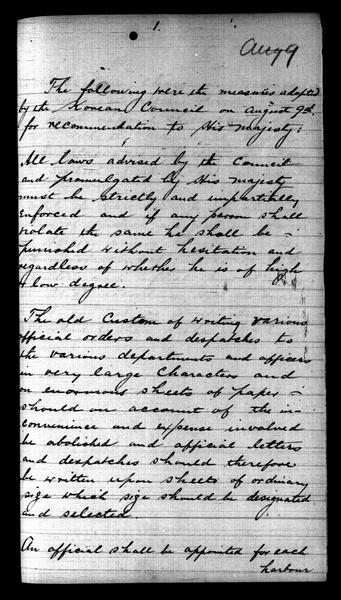 1.
Aug 9
The following were the measures adopted
by the Korean Council on August 9th
for recommendation to His Majesty:
All laws advised by the Council
and promulgated by His Majesty
must be strictly and impartially
enforced and if any person shall
violate the same he shall be -
punished without hesitation and
regardless of whether he is of high
or low degree.
The old Custom of writing various
official orders and despatches to
the various departments and officers
in very large Characters and
on enormous sheets of paper -
should on account of the in-
convenience and expense involved
be abolished and official letters
and despatches should therefore
be written upon sheets of ordinary
size which size should be designated
and selected.
An official shall be appointed for each
harbour